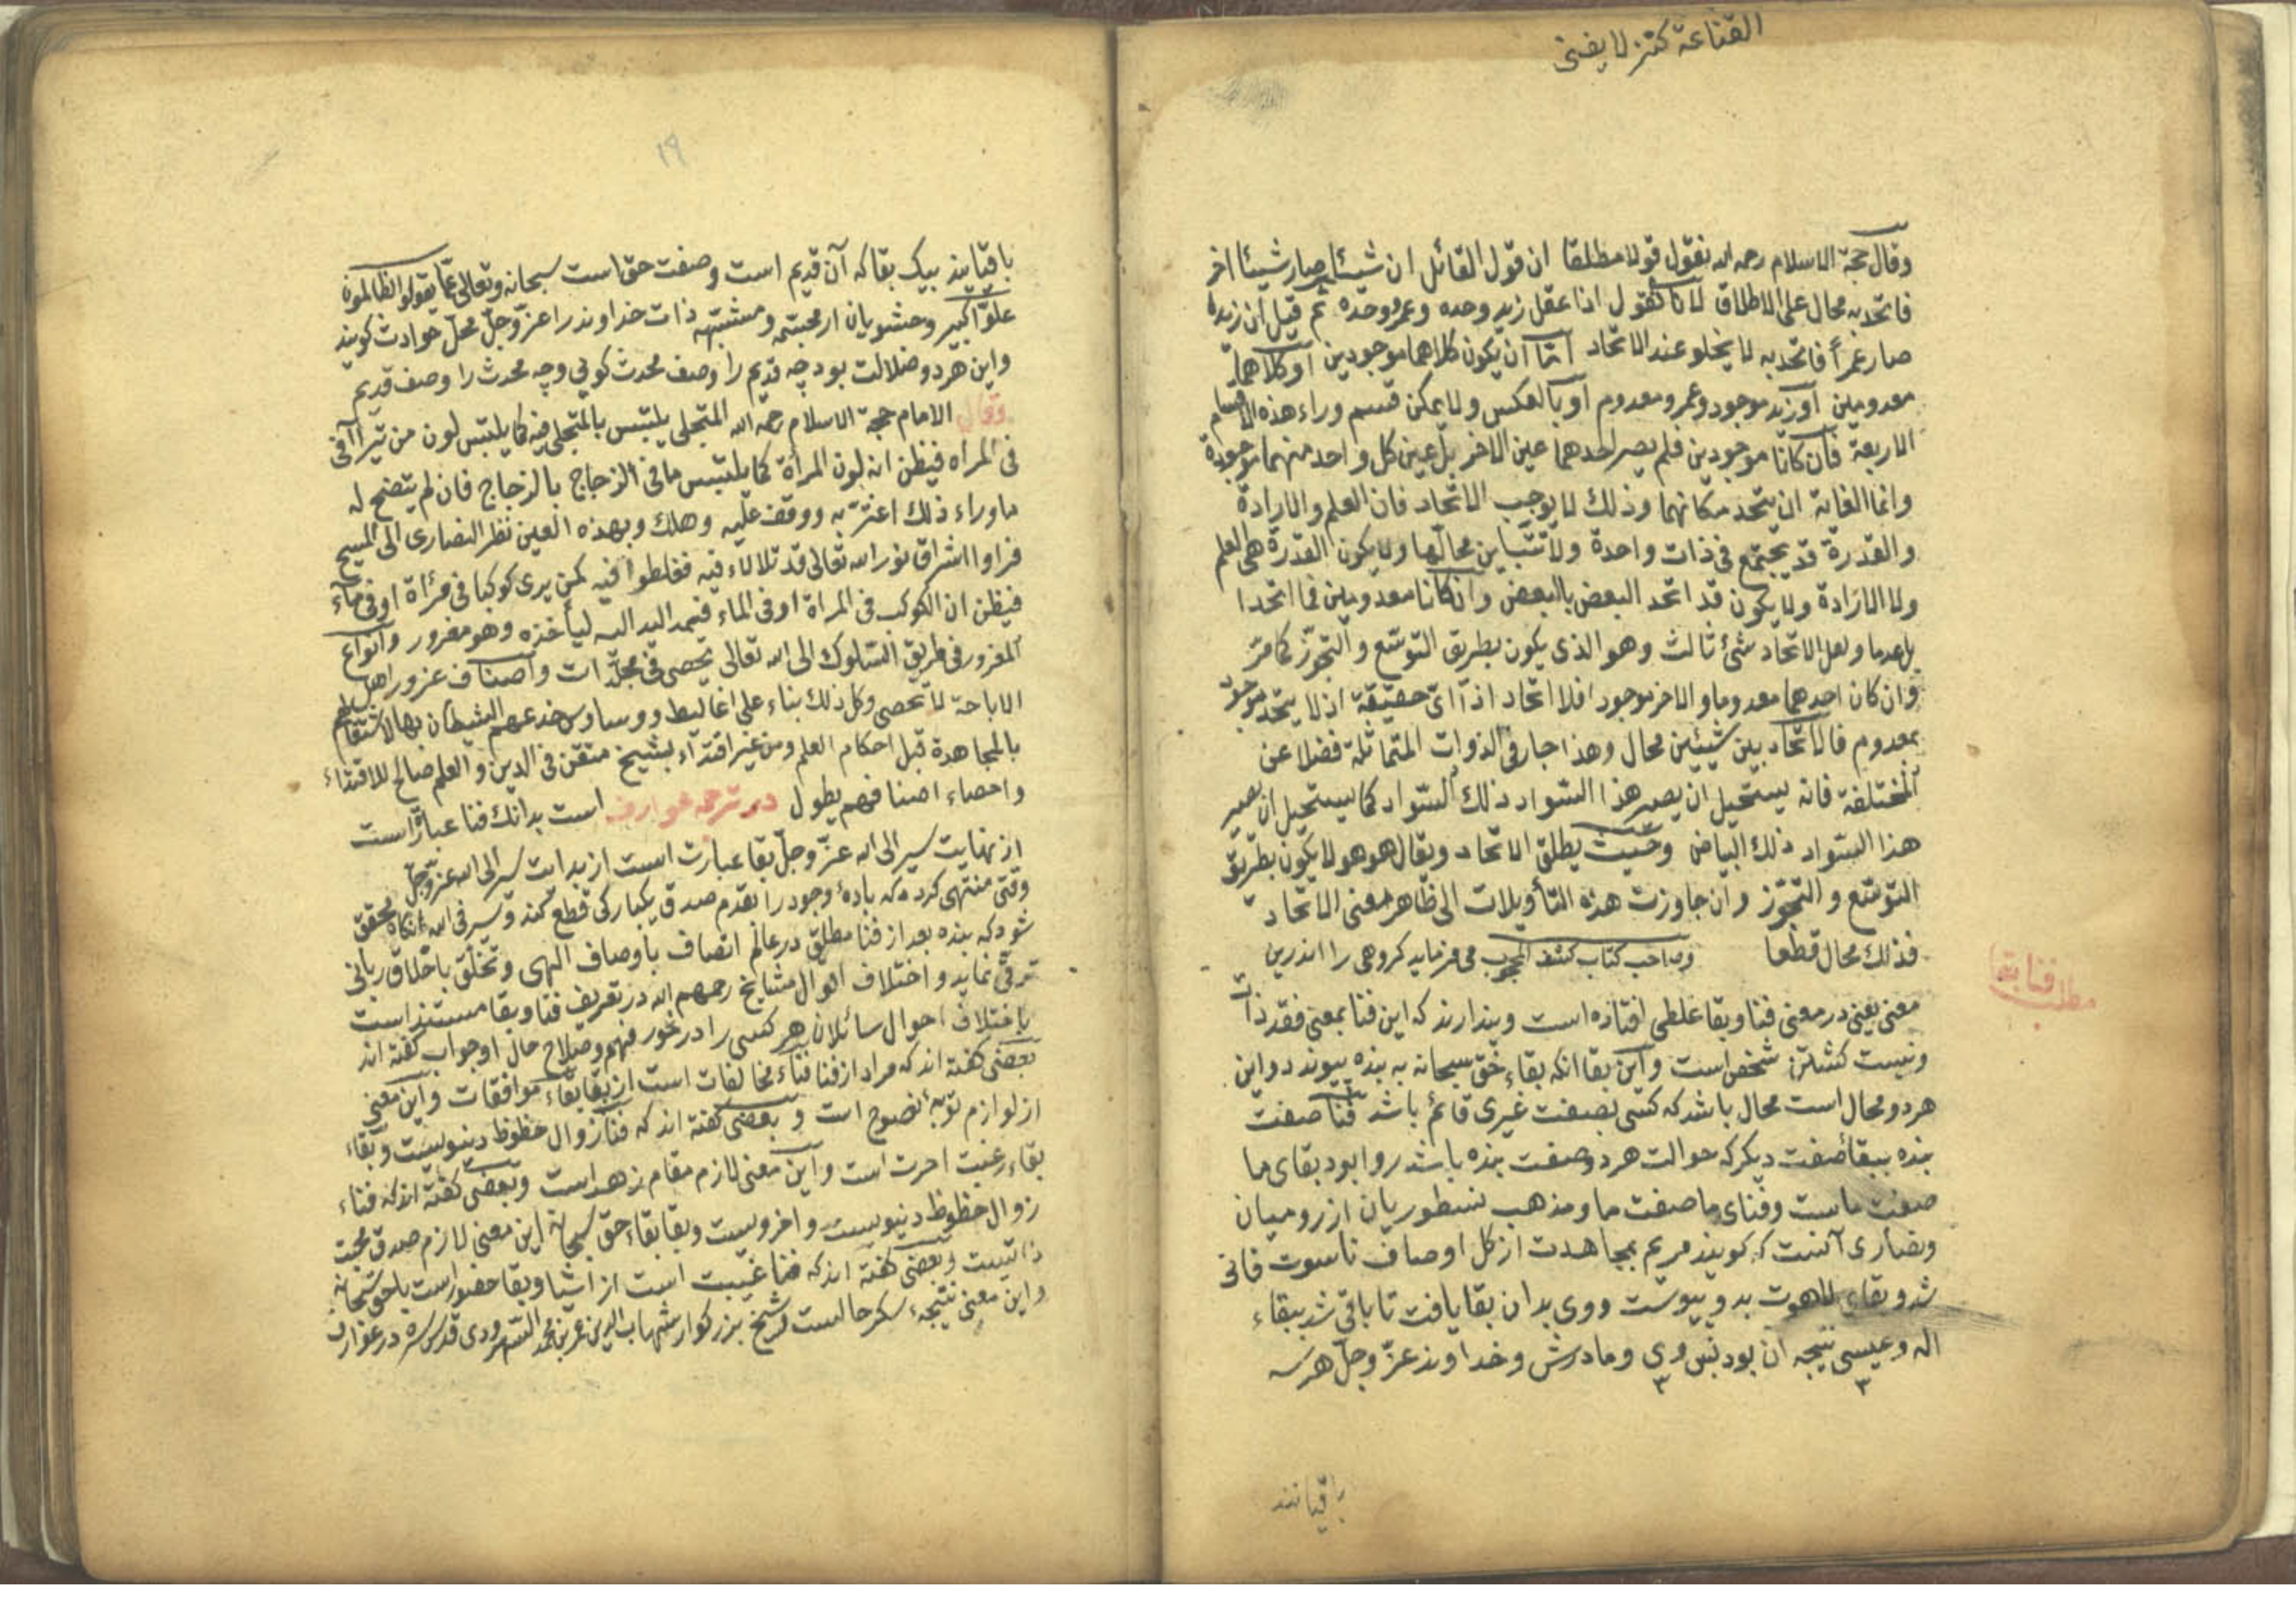 القناعة كنز لا يفنى
وقال حجة الاسلام رحمه الله نقول قولا مطلقا ان قول القائل ان شيئا صار شيئا اخر
فاتحد به محال على الاطلاق لانا نقول اذا عقل زيد وحده وعمرو وحده ثم قيل ان زيدا
صار عمرأ فاتحد به لا يخلو عند الاتحاد اما ان يكون كلاهما موجودين او كلاهما
معدومين او زيد موجود وعمرو معدوم او بالعكس ولا يمكن قسم وراء هذه الاقسام
الاربعة فان كانا موجودين فلم يصر احدهما عين الاخر بل عين كل واحد منهما موجودة
وانما الغاية ان يتحد مكانهما وذلك لا يوجب الاتحاد فان العلم والارادة
والقدرة قد يجتمع فى ذات واحدة ولا تتباين محالها ولا يكون القدرة هى العلم
ولا الارادة ولا يكون قد اتحد البعض بالبعض وان كانا معدومين فما اتحدا
بل عدما ولعل الاتحاد شئ ثالث وهو الذى يكون بطريق التوسّع والتجوّز كما مرّ
وان كان احدهما معدوما والاخر موجودا فلا اتحاد اذا اىّ حقيقة اذ لا يتحد موجود
بمعدوم فالاتحاد بين شيئين محال وهذا جار فى الذوات المتماثلة فضلا عن
المختلفة فانه يستحيل ان يصير هذا السّواد ذلك السّواد كما يستحيل ان يصير
هذا السّواد ذلك البياض وحيث يطلق الاتحاد ويقال هو هو لا يكون بطريق
التوسّع والتجوّز وان جاوزت هذه التأويلات الى ظاهر معنى الاتحاد
فذلك محال قطعا وصاحب كتاب كشف المحجوب مى فرمايد كروهى را اندرين
مطلب فنا بقا
معنى يعنى در معنى فنا وبقا غلطى افتاده است وپندارند كه اين فنا بمعنى فقد ذات
ونيست كشتن شخص است واين بقا انكه بقاء حق سبحانه به بنده پيوندد واين
هر دو محال است محال باشد كه كسى بصفت غيرى قائم باشد فنا صفت
بنده ببقا صفت ديكر كه حوالت هر دو صفت بنده باشد روا بود بقاى ما
صفت ماست وفناى ما صفت ما ومذهب نسطوريان از روميان
ونصارى آنست كه كويند مريم بمجاهدت از كل اوصاف ناسوت فانى
شد وبقاء لاهوت بدو پيوست ووى بدان بقا يافت تا باقى شد ببقاء
اله وعيسى نتيجه ان بود پس وى ومادرش وخداوند عزّ وجلّ هر سه
باقيانند
١٩
باقيانند بيك بقا كه آن قديم است وصفت حق است سبحانه وتعالى عما يقولوا الظالمون
علوّا كبيرا وحشويان از مجسّمه ومشبّهه ذات خداوند را عزّ وجلّ محلّ حوادث كويند
واين هر دو ضلالت بود چه قديم را وصف محدث كوئى وچه محدث را وصف قديم
وقال الامام حجة الاسلام رحمه الله المتجلى يلتبس بالمتجلى فيه كما يلتبس لون من تيرا آفى
فى المراه فيظن انه لون المرأة كما يلتبس ما فى الزجاج بالزجاج فان لم يتضح له
ما وراء ذلك اغترّ به ووقف عليه وهلك وبهذه العين نظر النصارى الى المسيح
فراوا اشراق نور الله تعالى قد تلألأ فيه فغلطوا فيه كمن يرى كوكبا فى مرأة او فى ماء
فيظن ان الكوكب فى المراة او فى الماء فيمد اليد اليه ليأخذه وهو مغرور وانواع
المغرور فى طريق السلوك الى الله تعالى تحصى فى مجلّدات واصناف غرور اهل
الاباحة لا تحصى وكل ذلك بناء على اغاليط ووساوس خدعهم الشيطان بها لاشتغالهم
بالمجاهدة قبل احكام العلم ومن غير اقتداء بشيخ متقن فى الدين والعلم صالح للاقتداء
واحصاء اصنافهم يطول در ترجمه عوارف است بدانك فنا عبارت است
از نهايت سير الى الله عزّ وجلّ بقا عبارت است از بدايت سير الى الله عزّ وجلّ
وقتى منتهى كردد كه باديهٔ وجود را بقدم صدق يكباركى قطع كند وسير فى الله انكاه محقق
شود كه بنده بعد از فنا مطلق در عالم اتصاف باوصاف الهى وتخلّق باخلاق ربانى
ترقى نمايد واختلاف اقوال مشايخ رحمهم الله در تعريف فنا وبقا مستند است
باختلاف احوال سائلان هر كسى را در خور فهم وصلاح حال او جواب گفته اند
بعضى كفته اند كه مراد از فنا فناء مخالفات است از بقا بقاء موافقات واين معنى
از لوازم توبهٔ نصوح است وبعضى كفته اند كه فنا زوال حظوظ دنيويست وبقاء
بقاء رغبت آخرت است واين معنى لازم مقام زهد است وبعضى كفته اند كه فناء
زوال حظوظ دنيويست واخرويست وبقا بقاء حق سبحانه اين معنى لازم صدق محبت
ذاتيست وبعضى كفته اند كه فنا غيبت است از اشيا وبقا حضور است با حق سبحانه
واين معنى نتيجهء سكر حالست شيخ بزركوار شهاب الدين عمر بن محمد السهروردى قدّس سرّه در عوارف